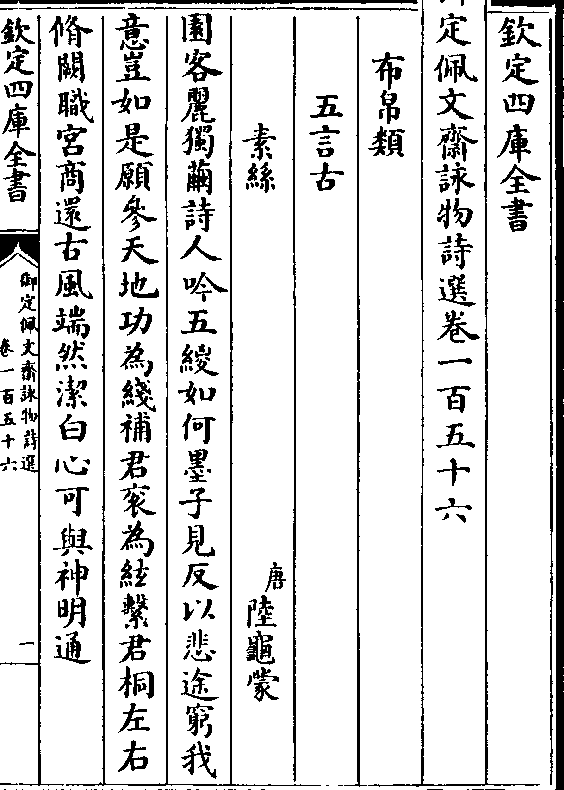 欽定四庫全書
定佩文齋詠物詩選卷一百五十六
布帛類
五言古
素絲
唐陸龜蒙
園客麗獨繭詩人吟五緵如何墨子見反以悲途窮我
意豈如是願參天地功為綫補君衮為絃繫君桐左右
脩闕職宮商還古風端然潔白心可與神明通
欽定四庫全書
御定佩文齋詠物詩選
卷一百五十六
一